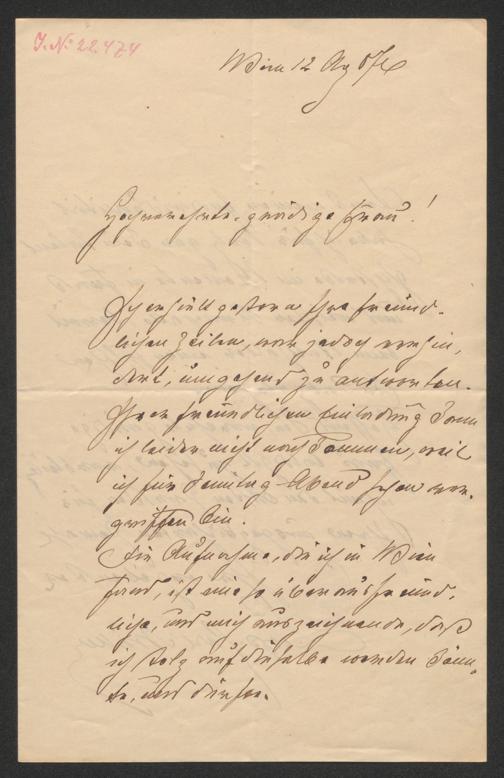 J. N. 22.474
Wien 12
Hochverehrte, gnädige Frau!
Ich erhielt gestern Ihre freund-
lichen Zeilen, war jedoch verhin-
dert, umgehend zu antworten.
Ihrer freundlichen Einladung kann
ich leider nicht nach kommen, weil
ich für Samstag Abend schon ver-
griffen bin.
Die Aufnahme, die ich in Wien
fand, ist eine so überaus freund-
liche, und mich auszeichnende, daß
ich stolz auf dieselbe werden könn-
te, und dürfte.